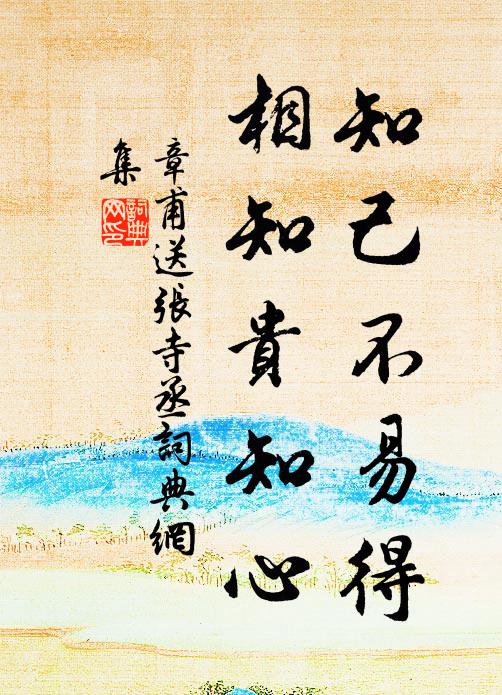 知己不易得
相知貴知心
章甫送張寺丞詞典網
集
詞典網印